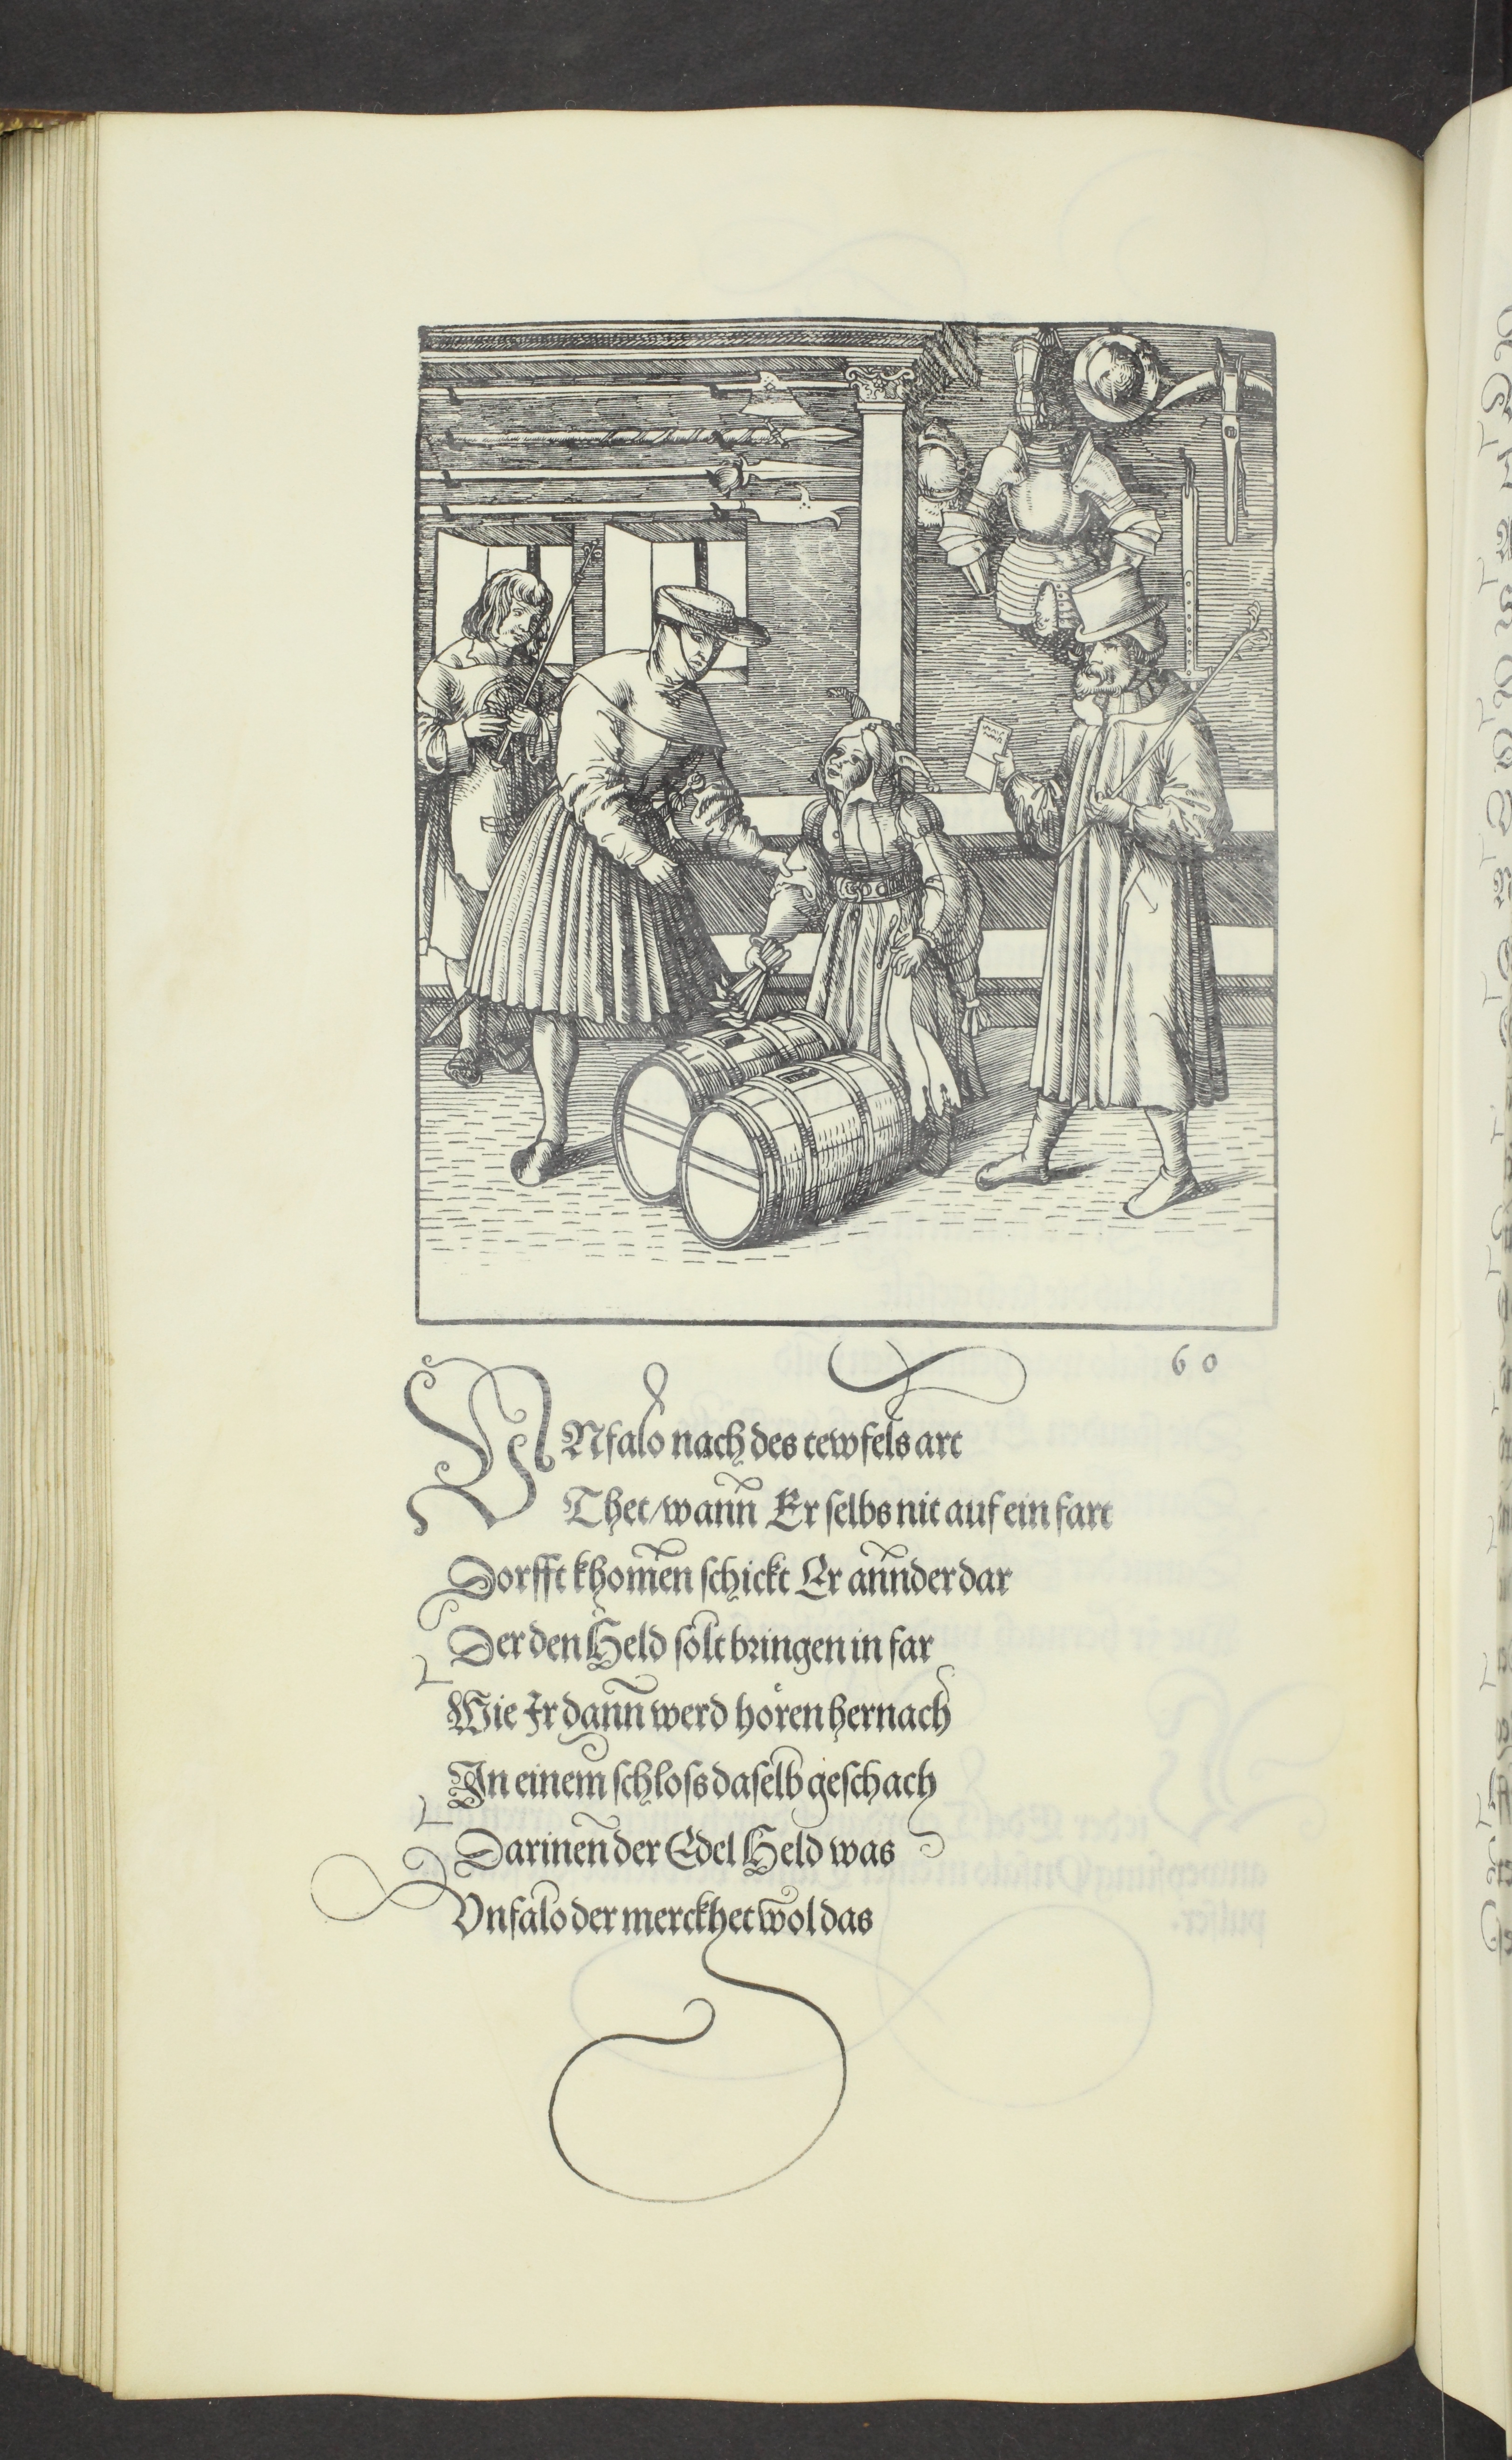 60
VNfalo nach des tewfels art
Thet/wann̄ Er selbs nit auf ein fart
Dorfft khomen̄ schickt Er ann̄der dar
Der den Held solt bringen in far
Wie Jr dann̄ werd hören hernach
In einem̄ schloss daselb geschach
Darinen̄ der Edel Held was
Vnfalo der merckhet wol das